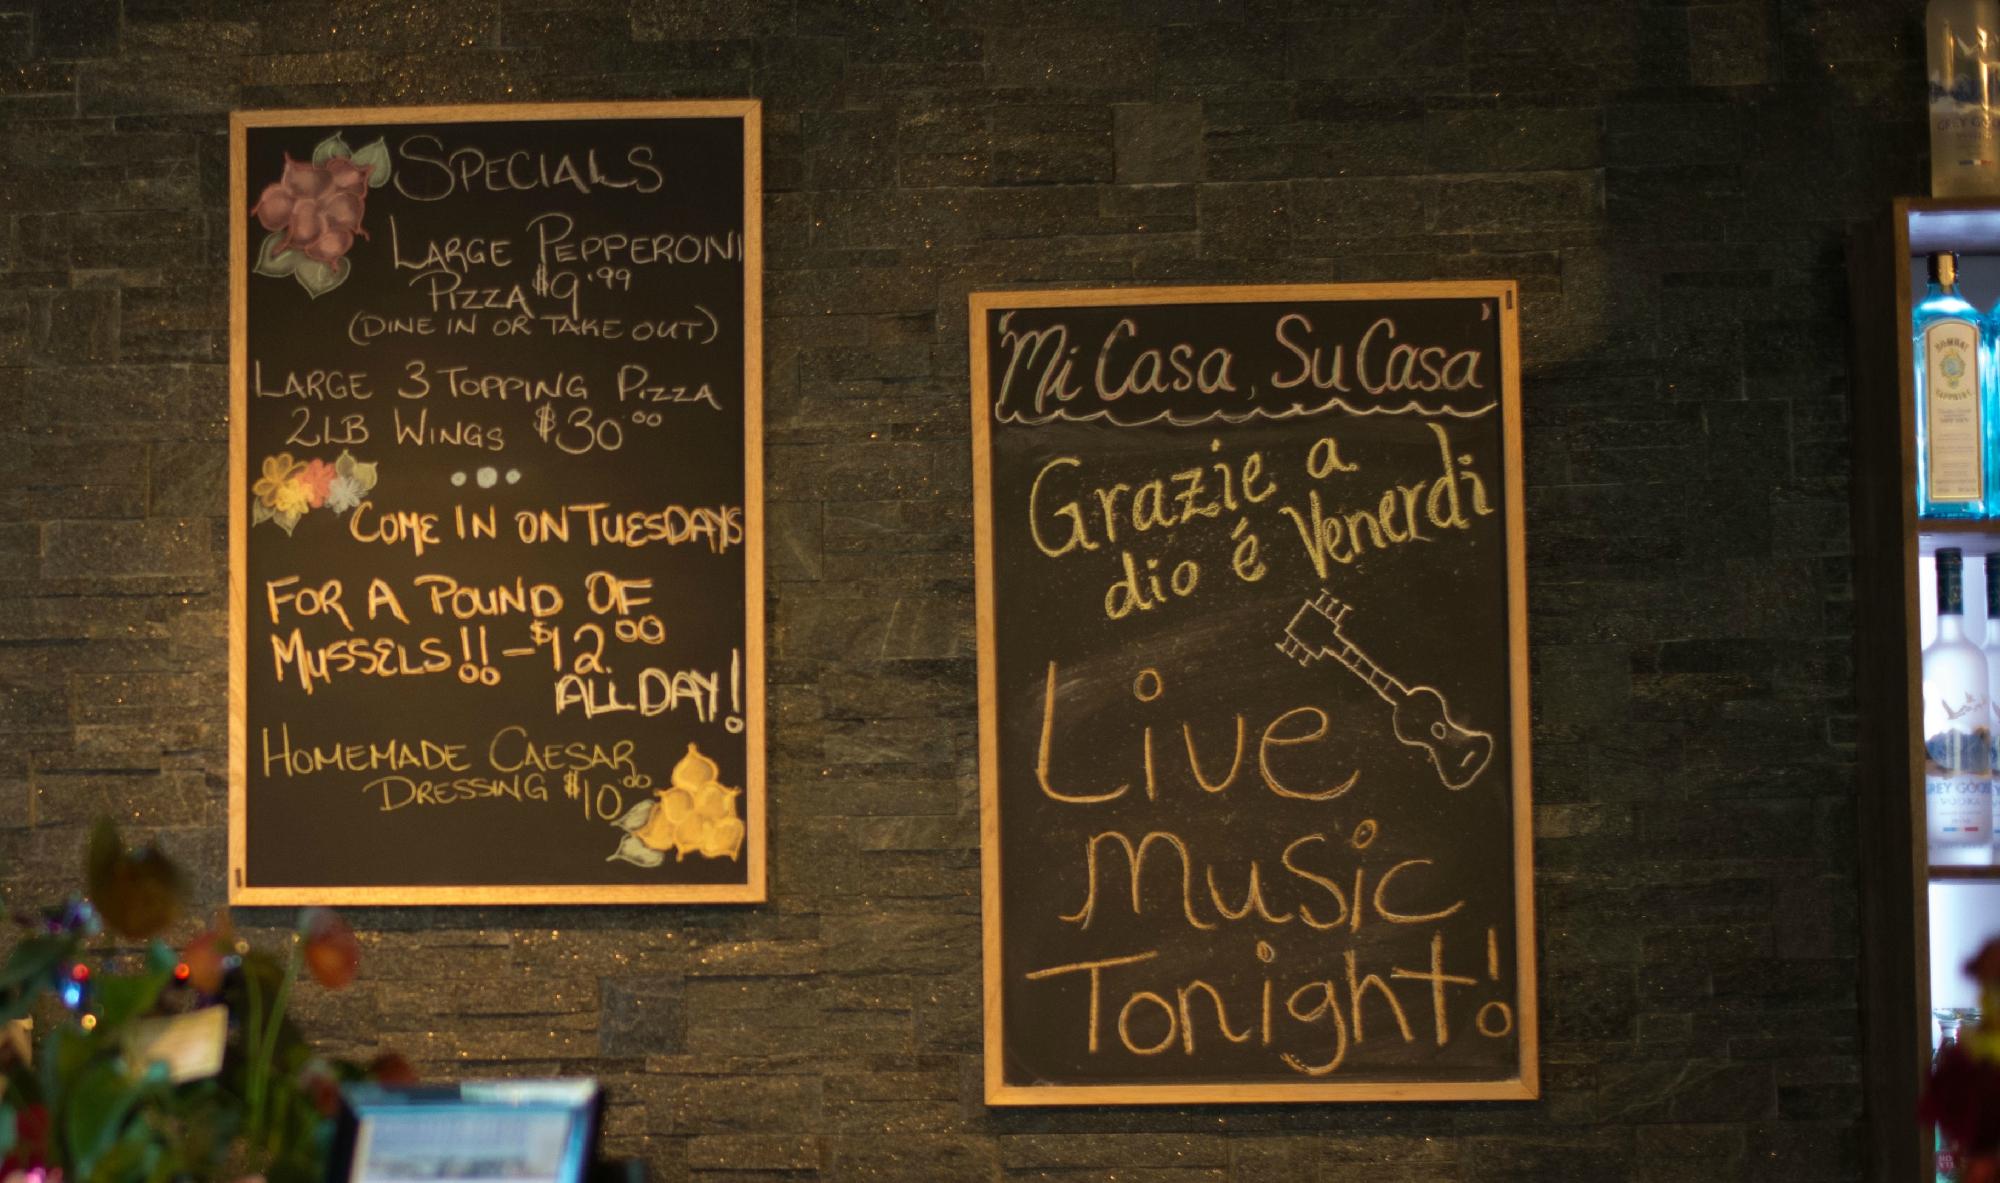 SPECIALS
LARGE PEPPERONI
PIZZA $9.99
(DINE IN OR TAKE OUT)
LARGE 3 TOPPING PIZZA
2LB WINGS $30.00
COME IN ON TUESDAYS
FOR A POUND OF
MUSSELS!! - $12.00
ALL DAY!
HOMEMADE CAESAR
DRESSING $10.00
'Mi Casa, Su Casa'
Grazie a
dio é Venerdi
Live
Music
Tonight!
BOMBAY
SAPPHIRE
GREY GOOSE
VODKA